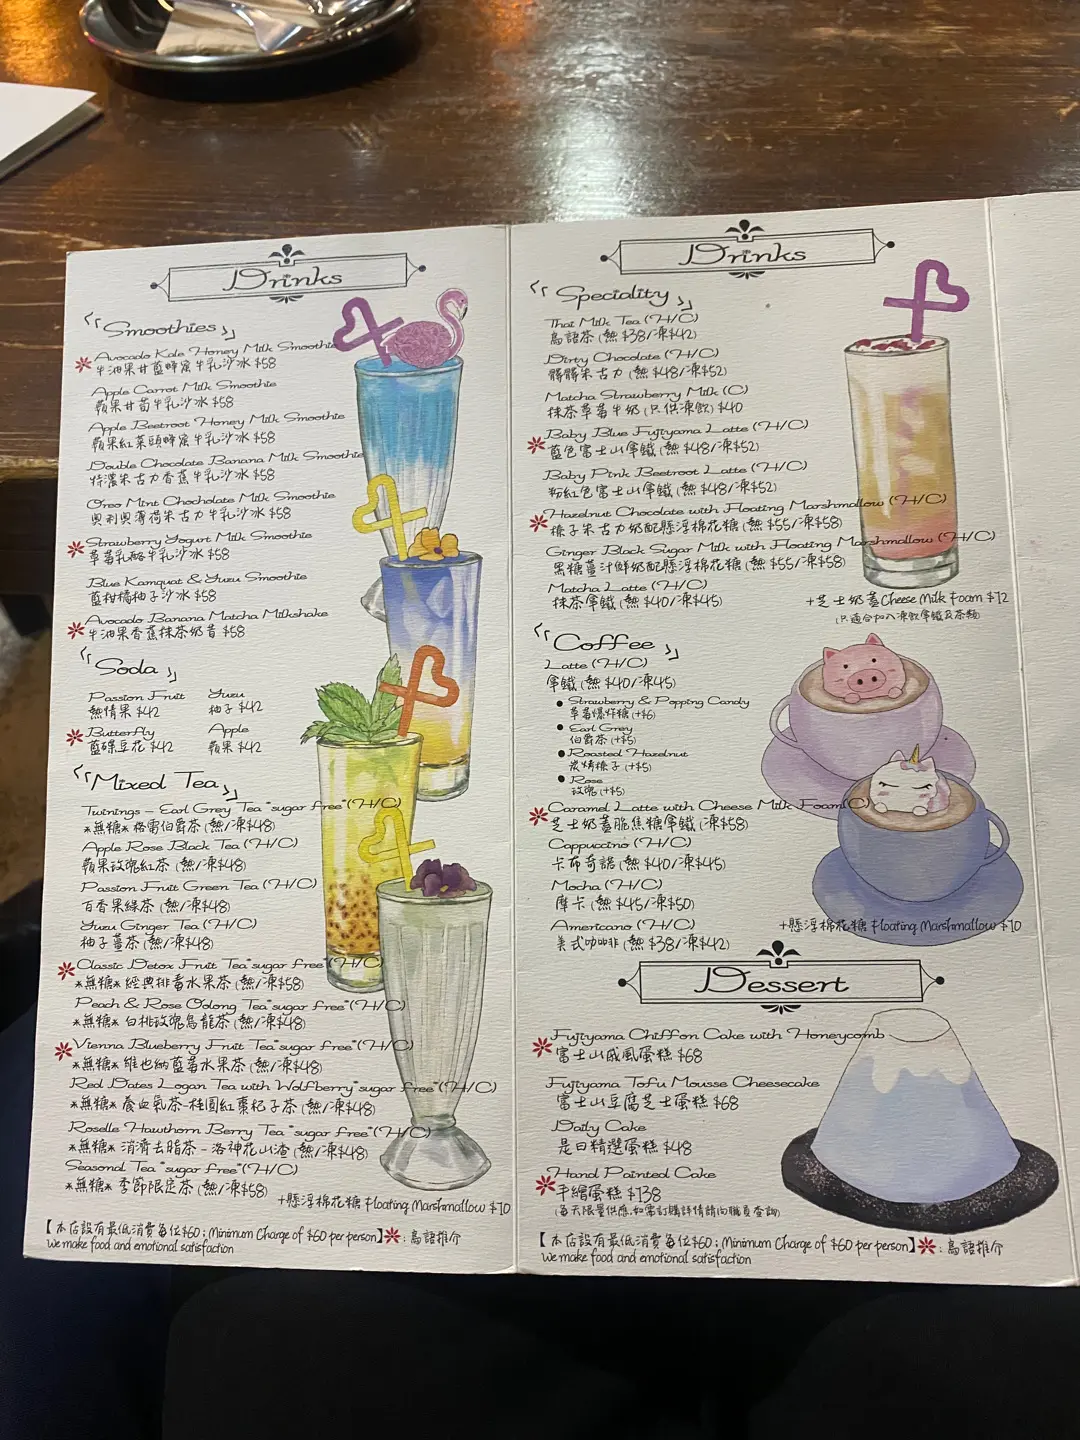 Drinks
Smoothies
Avocado Kale Honey Milk Smoothie
牛油果甘藍蜂蜜牛乳沙冰 $58
Apple Carrot Milk Smoothie
蘋果甘筍牛乳沙冰 $58
Apple Beetroot Honey Milk Smoothie
蘋果紅菜頭蜂蜜牛乳沙冰 $58
Double Chocolate Banana Milk Smoothie
特濃朱古力香蕉牛乳沙冰 $58
Oreo Mint Chocholate Milk Smoothie
奧利奧薄荷朱古力牛乳沙冰 $58
Strawberry Yogurt Milk Smoothie
草莓乳酪牛乳沙冰 $58
Blue Kamquat & Yuzu Smoothie
藍柑橘柚子沙冰 $58
Avocado Banana Matcha Milkshake
牛油果香蕉抹茶奶昔 $58
Soda
Passion Fruit Yuzu
熱情果 $42 柚子 $42
Butterfly Apple
藍碟豆花 $42 蘋果 $42
Mixed Tea
Twinings - Earl Grey Tea "sugar free" (H/C)
*無糖* 格雷伯爵茶 (熱/凍$48)
Apple Rose Black Tea (H/C)
蘋果玫瑰紅茶 (熱/凍$48)
Passion Fruit Green Tea (H/C)
百香果綠茶 (熱/凍$48)
Yuzu Ginger Tea (H/C)
柚子薑茶 (熱/凍$48)
Classic Detox Fruit Tea "sugar free" (H/C)
*無糖* 經典排毒水果茶 (熱/凍$58)
Peach & Rose Oolong Tea "sugar free" (H/C)
*無糖* 白桃玫瑰烏龍茶 (熱/凍$48)
Vienna Blueberry Fruit Tea "sugar free" (H/C)
*無糖* 維也納藍莓水果茶 (熱/凍$48)
Red Dates Logan Tea with Wolfberry "sugar free" (H/C)
*無糖* 養血氣茶-桂圓紅棗杞子茶 (熱/凍$48)
Roselle Hawthorn Berry Tea "sugar free" (H/C)
*無糖* 消滯去脂茶 - 洛神花山渣 (熱/凍$48)
Seasonal Tea "sugar free" (H/C)
*無糖* 季節限定茶 (熱/凍$58)
+懸浮棉花糖 Floating Marshmallow $10
【本店設有最低消費每位$60; Minimum Charge of $60 per person】: 鳥語推介
we make food and emotional satisfaction
Drinks
Speciality
Thai Milk Tea (H/C)
鳥語茶 (熱 $38/凍$42)
Dirty Chocolate (H/C)
髒髒朱古力 (熱 $48/凍$52)
Matcha Strawberry Milk (C)
抹茶草莓牛奶 (只供凍飲) $40
Baby Blue Fujiyama Latte (H/C)
藍色富士山拿鐵 (熱 $48/凍$52)
Baby Pink Beetroot Latte (H/C)
粉紅色富士山拿鐵 (熱 $48/凍$52)
Hazelnut Chocolate with Floating Marshmallow (H/C)
榛子朱古力奶配懸浮棉花糖 (熱 $55/凍$58)
Ginger Black Sugar Milk with Floating Marshmallow (H/C)
黑糖薑汁鮮奶配懸浮棉花糖 (熱 $55/凍$58)
Matcha Latte (H/C)
抹茶拿鐵 (熱 $40/凍$45)
+芝士奶蓋 Cheese Milk Foam $12
(只適合加入凍飲拿鐵及茶類)
Coffee
Latte (H/C)
拿鐵 (熱 $40/凍$45)
• Strawberry & Popping Candy
草莓爆炸糖 (+$6)
• Earl Grey
伯爵茶 (+$5)
• Roasted Hazelnut
炭烤榛子 (+$5)
• Rose
玫瑰 (+$5)
Caramel Latte with Cheese Milk Foam (C)
芝士奶蓋脆焦糖拿鐵 (凍$58)
Cappuccino (H/C)
卡布奇諾 (熱 $40/凍$45)
Mocha (H/C)
摩卡 (熱 $45/凍$50)
Americano (H/C)
美式咖啡 (熱 $38/凍$42)
+懸浮棉花糖 Floating Marshmallow $10
Dessert
Fujiyama Chiffon Cake with Honeycomb
富士山戚風蛋糕 $68
Fujiyama Tofu Mousse Cheesecake
富士山豆腐芝士蛋糕 $68
Daily Cake
是日精選蛋糕 $48
Hand Painted Cake
手繪蛋糕 $138
(每天限量供應,如需訂購詳情請向職員查詢)
【本店設有最低消費每位$60; Minimum Charge of $60 per person】: 鳥語推介
we make food and emotional satisfaction